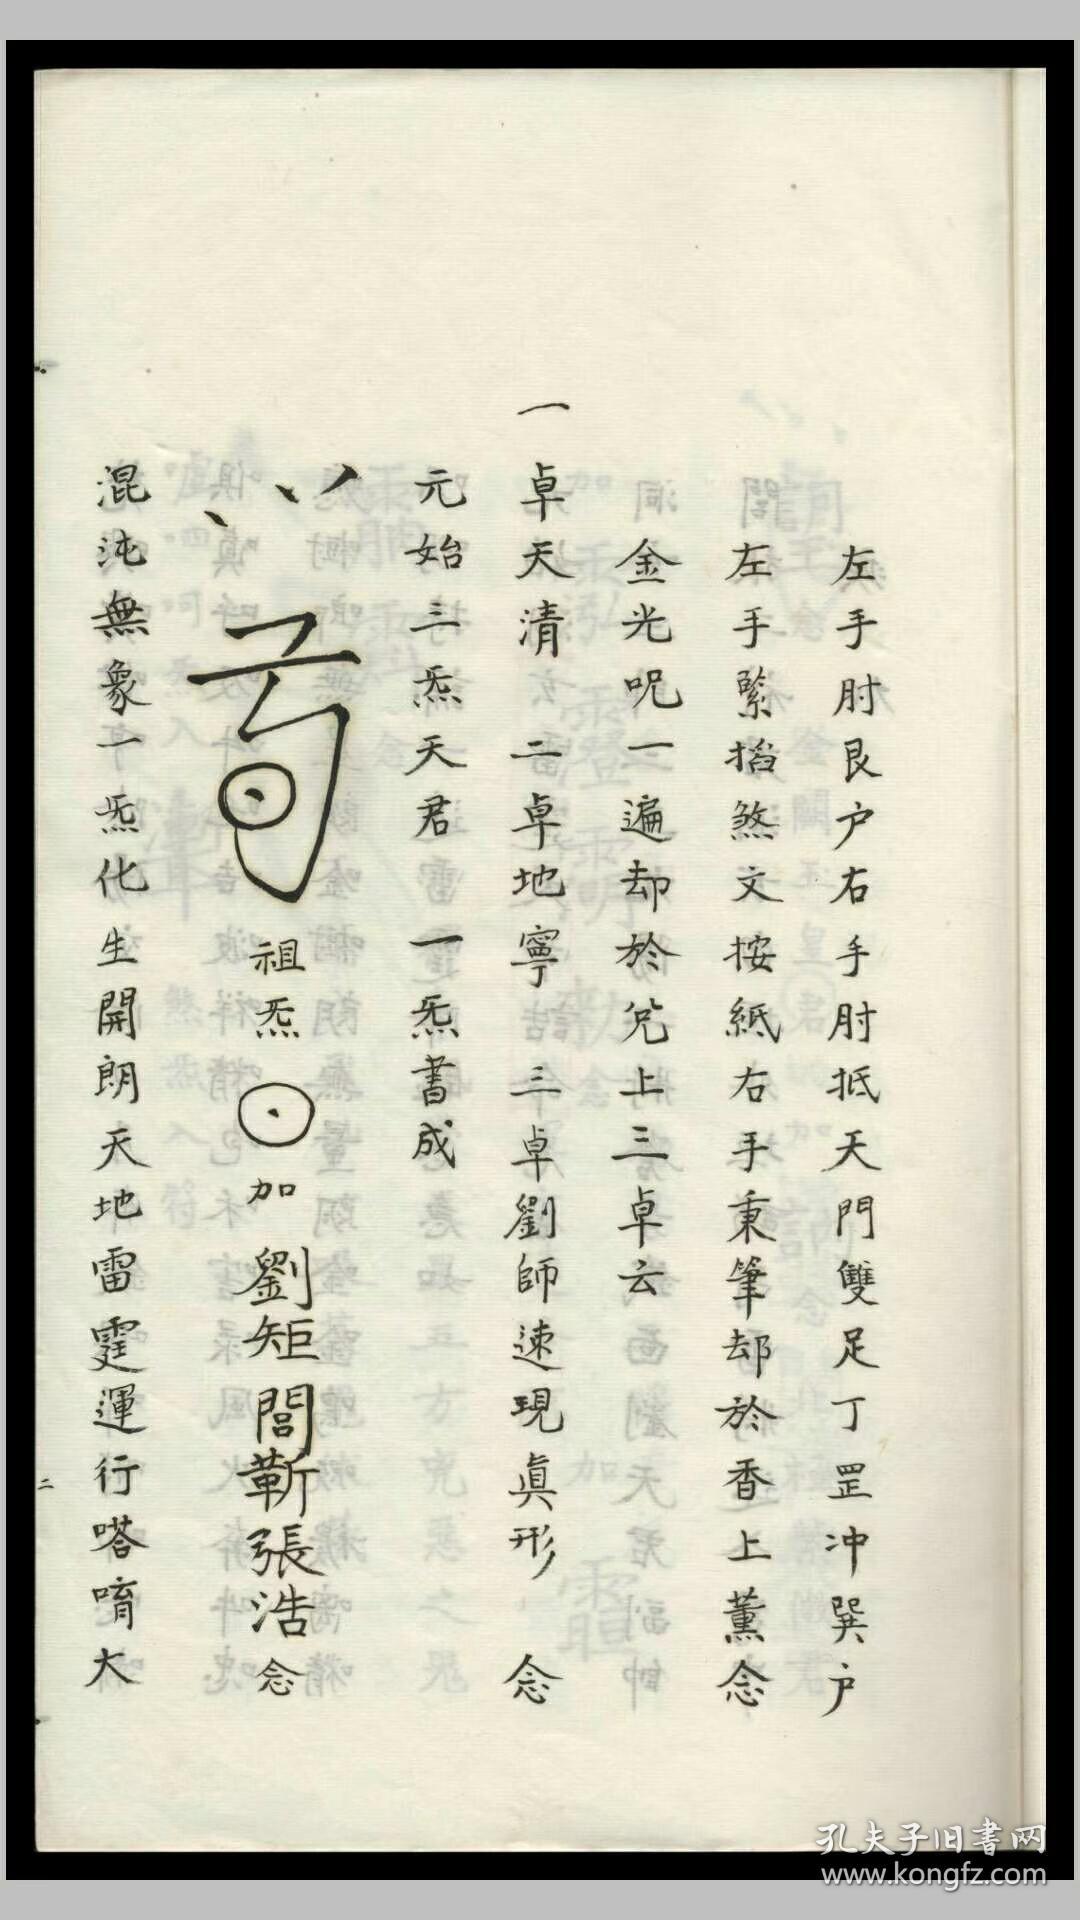 左手肘艮户右手肘抵天門雙足丁罡冲巽户
左手緊搯煞文按紙右手秉筆却於香上薰念
金光呪一遍却於炁上三卓云
一卓天清 二卓地寧三卓劉師速現眞形 念
元始三炁天君 一炁書成
祖炁 加 劉矩閭蔪張浩念
混沌無象一炁化生開朗天地雷霆運行嗒唷大
二
孔夫子旧書网
www.kongfz.com